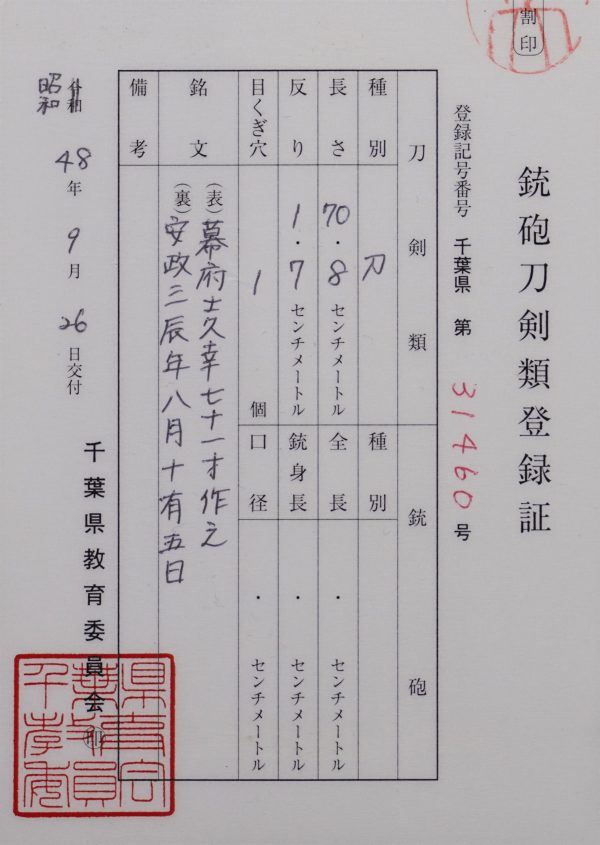 割印
銃砲刀剣類登録証
登録記号番号 千葉県 第 31460 号
刀剣類 銃砲
種別 刀 種別
長さ 70.8センチメートル 全長 ・ センチメートル
反り 1.7センチメートル 銃身長 ・ センチメートル
目くぎ穴 1個 口径 ・ センチメートル
銘文 (表)幕府士久幸七十一才作之
(裏)安政三辰年八月十有五日
備考
昭和48年9月26日交付
千葉県教育委員会 印